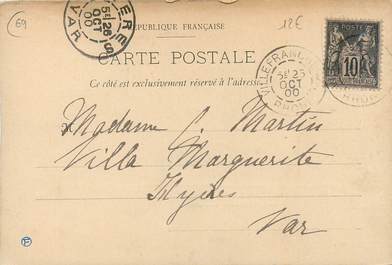 69
12€
HYERES
5E/26
OCT
00
VAR
RÉPUBLIQUE FRANÇAISE
CARTE POSTALE
Ce côté est exclusivement réservé à l'adresse
VILLEFRANCHE
5E/25
OCT
00
RHONE
10
Madame J. Martin
Villa Marguerite
Hyères
Var